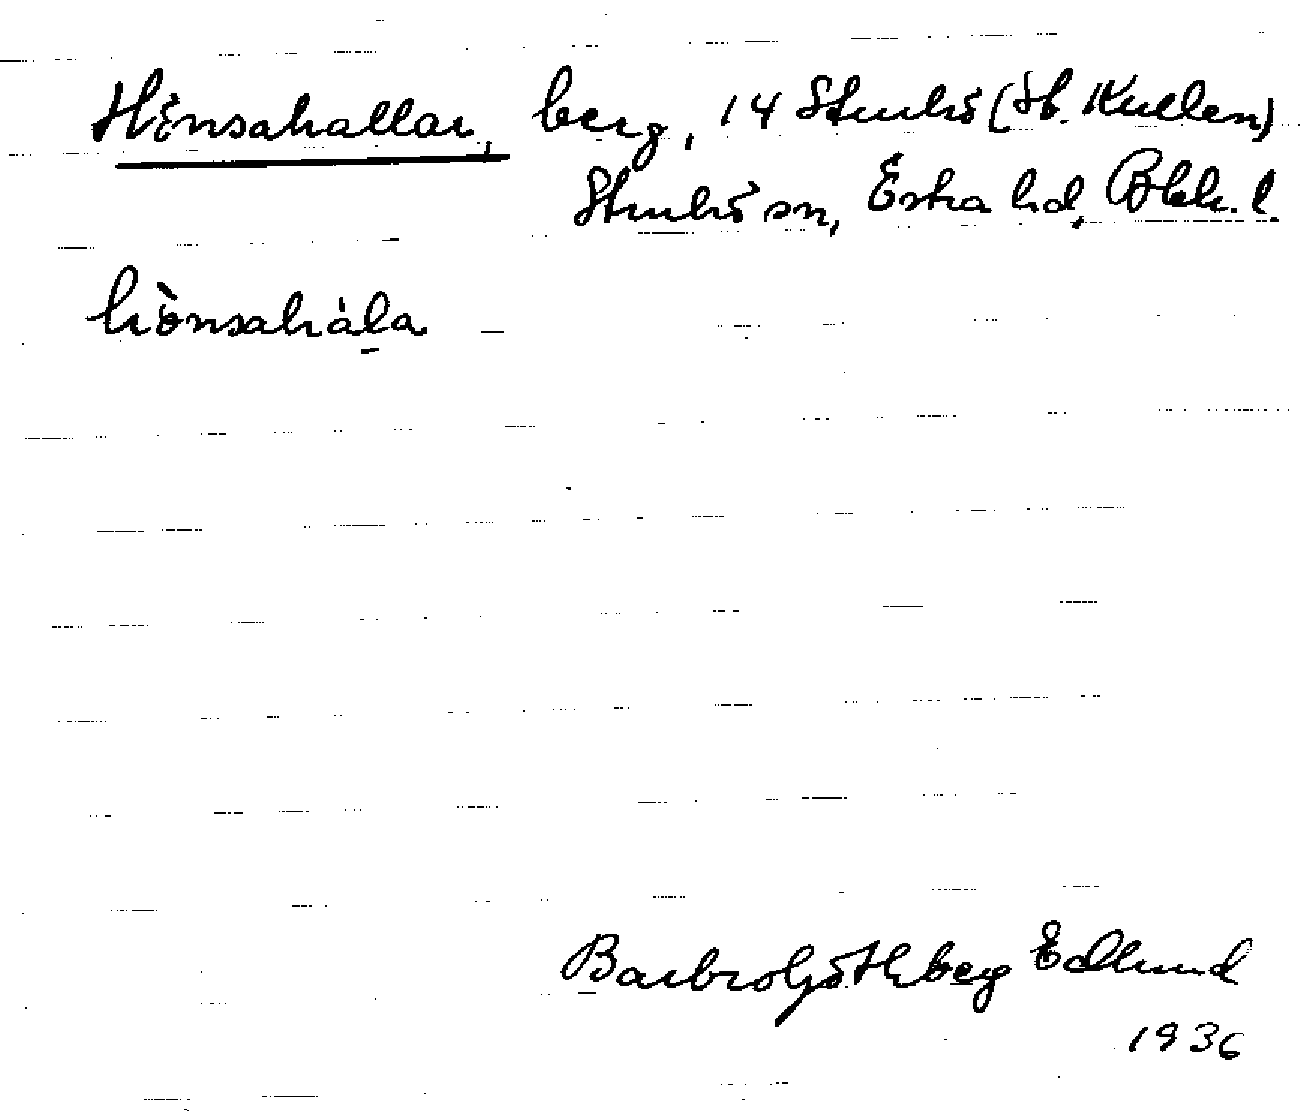 Hönsahallar, berg, 14 Stenbrö (St. Kullen)
Stenbrö sn, Östra hd, Blek. l.
hönsahàla
Barbro Göthberg Edlund
1936